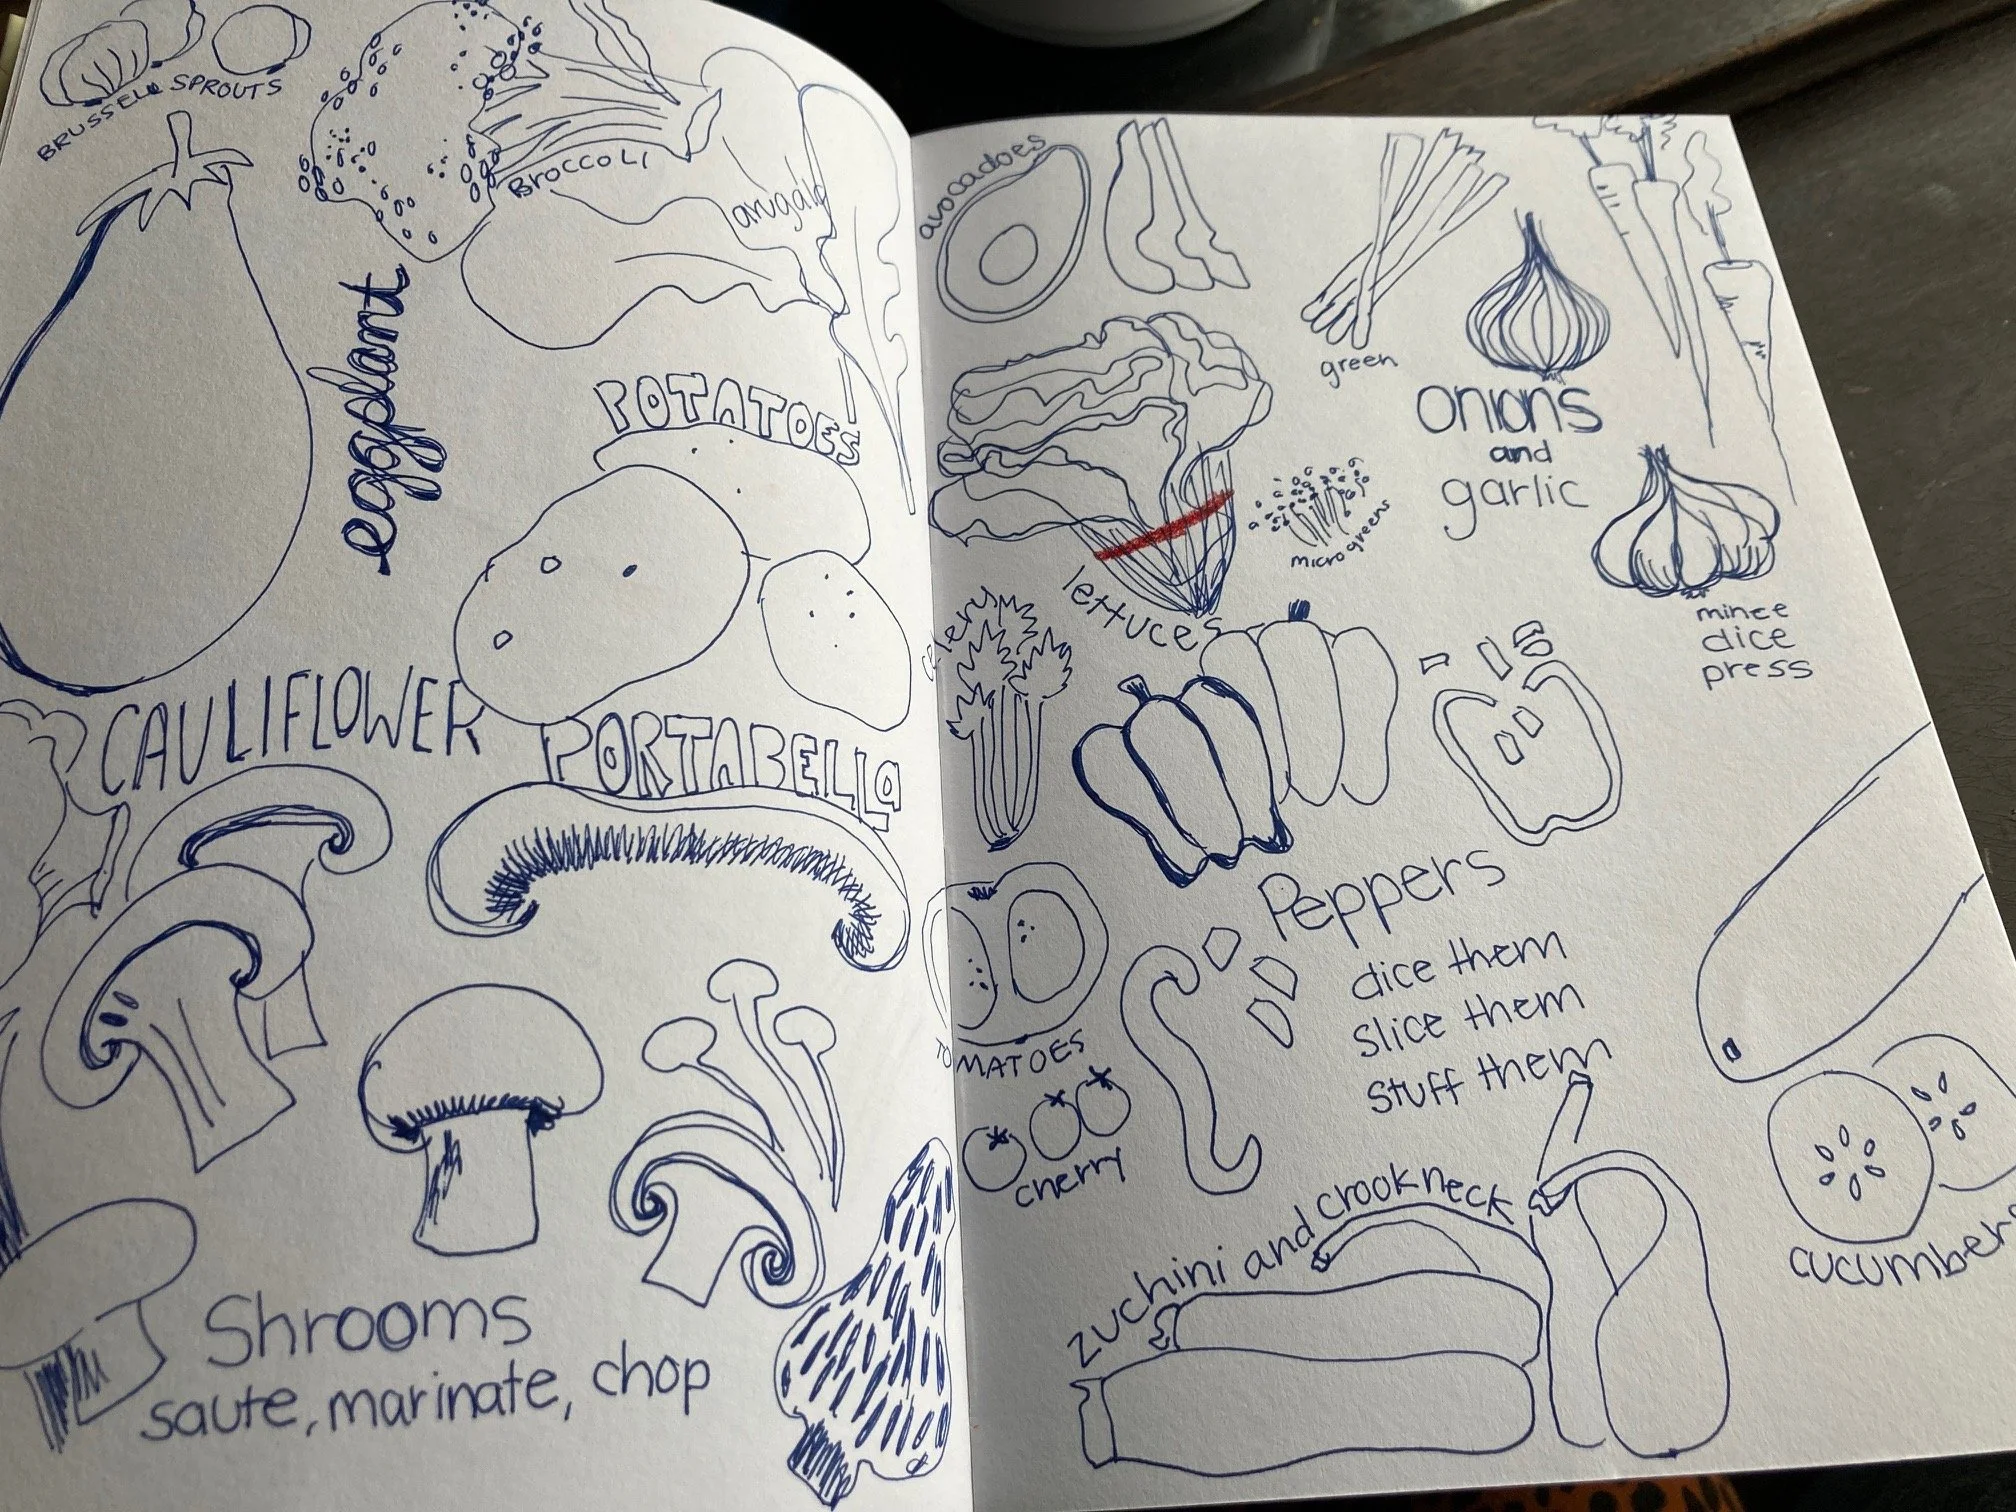 BRUSSELL SPROUTS
BROCCOLI
arugala
eggplant
POTATOES
CAULIFLOWER
PORTABELLa
Shrooms
saute, marinate, chop
avocadoes
green
onions
and
garlic
mince
dice
press
microgreens
lettuces
celery
Peppers
dice them
slice them
stuff them
TOMATOES
cherry
zuchini and crookneck
cucumbers